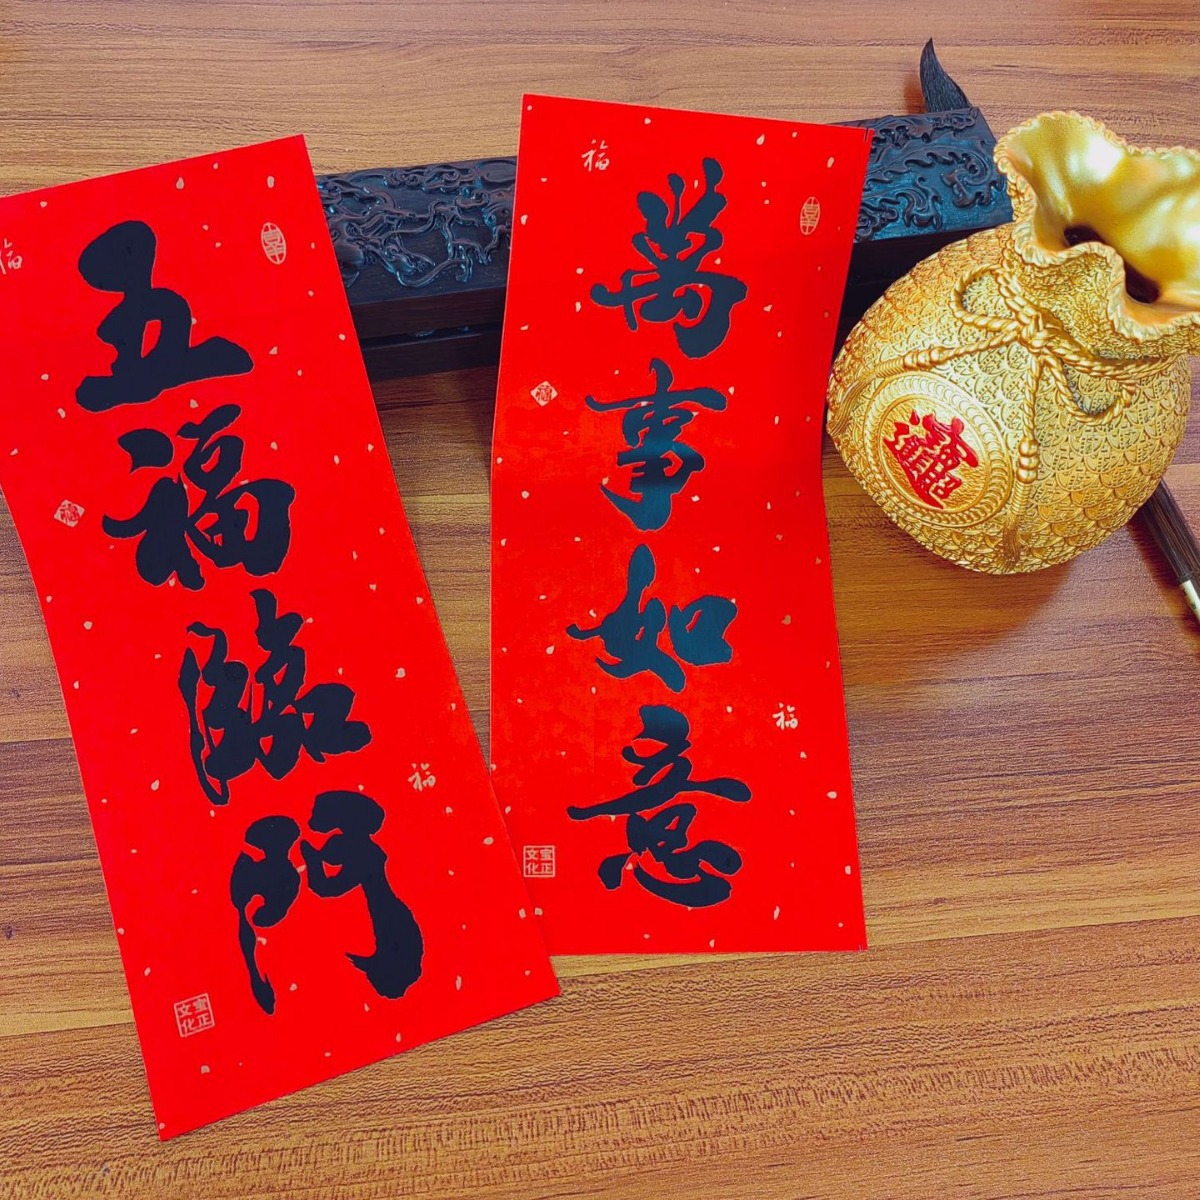 五福臨門
福
福
福
宝正文化
萬事如意
福
福
福
宝正文化
招財進寶